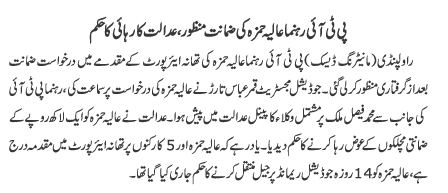 پی ٹی آئی رہنما عالیہ حمزہ کی ضمانت منظور، عدالت کا رہائی کا حکم
راولپنڈی (مانیٹرنگ ڈیسک) پی ٹی آئی رہنما عالیہ حمزہ کی تھانہ ایئرپورٹ کے مقدمے میں درخواست ضمانت
بعد از گرفتاری منظور کر لی گئی۔ جوڈیشل مجسٹریٹ قمر عباس تارڑ نے عالیہ حمزہ کی درخواست پر سماعت کی، رہنما پی ٹی آئی
کی جانب سے محمد فیصل ملک پر مشتمل وکلاء کا پینل عدالت میں پیش ہوا۔ عدالت نے عالیہ حمزہ کو ایک لاکھ روپے کے
ضمانتی مچلکوں کے عوض رہا کرنے کا حکم دیدیا۔ یاد رہے کہ عالیہ اور 5 کارکنوں پر تھانہ ایئرپورٹ میں مقدمہ درج
ہے، عالیہ حمزہ کو 14 روزہ جوڈیشل ریمانڈ پر جیل منتقل کرنے کا حکم جاری کیا گیا تھا۔